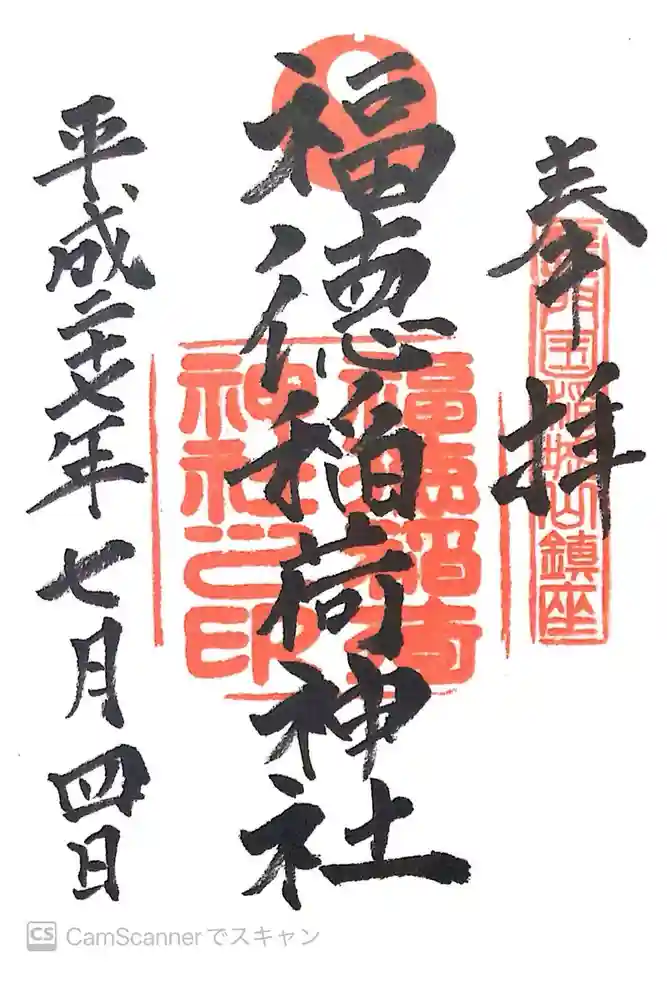 奉拝
福徳稲荷神社
福徳稲荷
神社之印
平成二十七年七月四日
CS CamScannerでスキャン